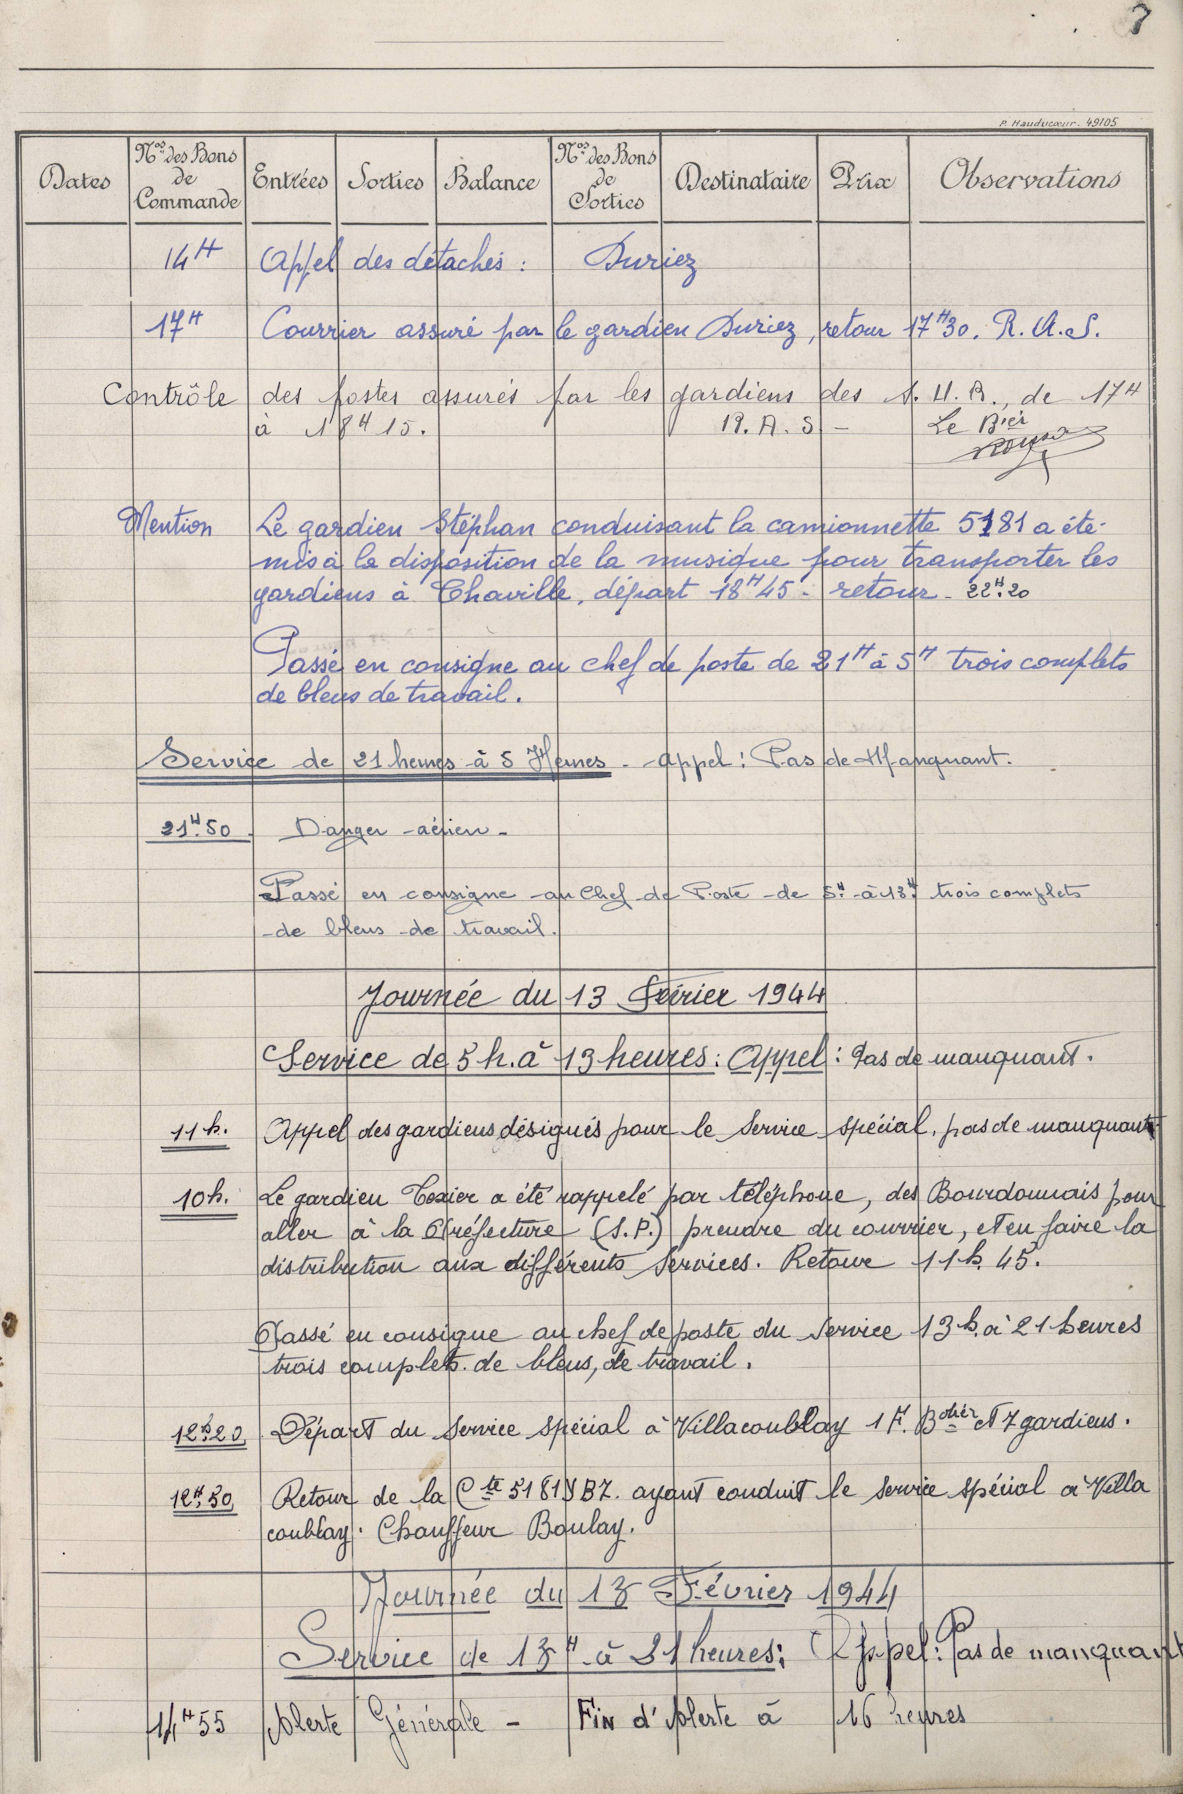 7
P. Hauducœur. 49105
Dates
Nos des Bons de Commande
Entrées
Sorties
Balance
Nos des Bons de Sorties
Destinataire
Prix
Observations
14H Appel des détachés : Duriez
17H Courrier assuré par le gardien Duriez, retour 17H30. R.A.S.
Contrôle des postes assurés par les gardiens des de 17H
à 18H15. R.A.S – Le Bier
Mention Le gardien Stéphan conduisant la camionnette 5181 a été
mis à la disposition de la musique pour transporter les
gardiens à Chaville, départ 18H45 - retour - 22H20
Passé en consigne au chef de poste de 21H à 5H trois complets
de bleus de travail.
Service de 21 heures à 5 Heures - Appel : Pas de Manquant.
21H50. Danger aérien -
Passé en consigne au Chef de Poste de 5H à 13H trois complets
de bleus de travail.
Journée du 13 Février 1944
Service de 5 h. à 13 heures : Appel : Pas de manquant.
11h. Appel des gardiens désignés pour le Service spécial, pas de manquant
10h. Le gardien Texier a été rappelé par téléphone, des Bourdonnais pour
aller à la Préfecture (S.P.) prendre du courrier, et en faire la
distribution aux différents Services. Retour 11h. 45.
Passé en consigne au chef de poste du Service 13h. à 21 heures
trois complets de bleus, de travail.
12h20. Départ du Service spécial à Villacoublay 1 F. et 7 gardiens.
12H50. Retour de la Cte 5181 ayant conduit le service spécial à Villa
coublay. Chauffeur Boulay.
Journée du 13 Février 1944
Service de 13H à 21 heures : Appel : Pas de manquant
14H55 Alerte Générale - Fin d'Alerte à 16 heures